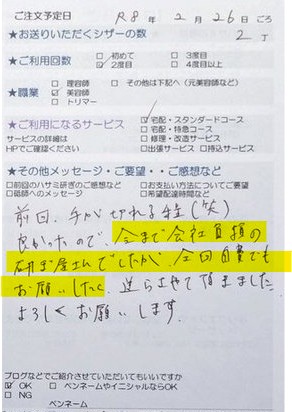 ご注文予定日 R8年2月26日ごろ
★お送りいただくシザーの数 2丁
★ご利用回数 □初めて □3度目
☑2度目 □4度目以上
★職業 □理容師 □その他は下記へ(元美容師など)
☑美容師
□トリマー
★ご利用になるサービス ☑宅配・スタンダードコース
□宅配・特急コース
サービスの詳細は □修理・改造サービス
HPでご確認ください □出張サービス □持込サービス
★その他メッセージ・ご要望・・ご感想など
□前回のハサミ研ぎのご感想など □お支払い方法についてご要望
□砥師へのメッセージ □希望配達時間など
前回、手が切れる程(笑)
良かったので、今まで会社負担の
研ぎ屋さんでしたが、今回自費でも
お願いしたく 送らさせて頂きました。
よろしくお願いします。
ブログなどでご紹介させていただいてもいいですか
☑OK □ペンネームやイニシャルならOK
□NG
ペンネーム